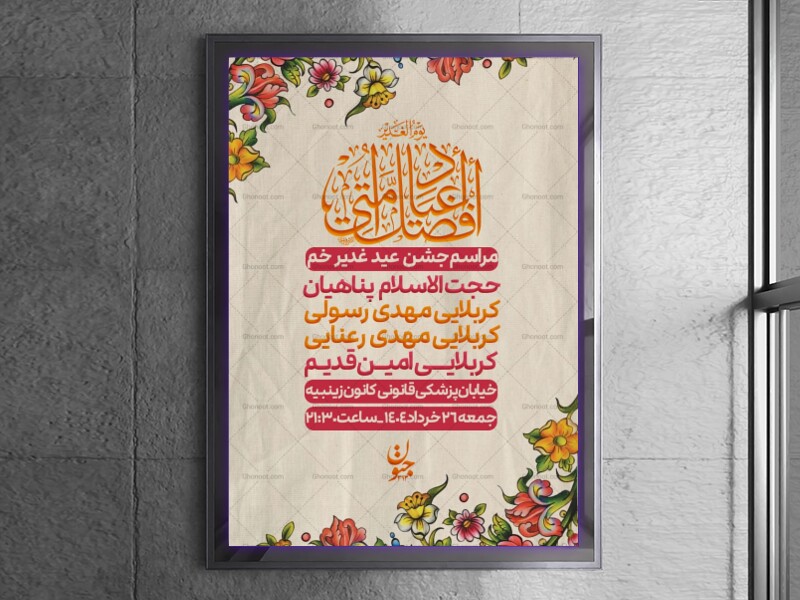 یوم الغدیر
أفضل أعیاد أمتی
مراسم جشن عید غدیر خم
حجت الاسلام پناهیان
کربلایی مهدی رسولی
کربلایی مهدی رعنایی
کربلایی امین قدیم
خیابان پزشکی قانونی کانون زینبیه
جمعه ۲۶ خرداد ۱۴۰۴_ساعت ۲۱:۳۰
جنون
۳۱۳
Ghonoot.com